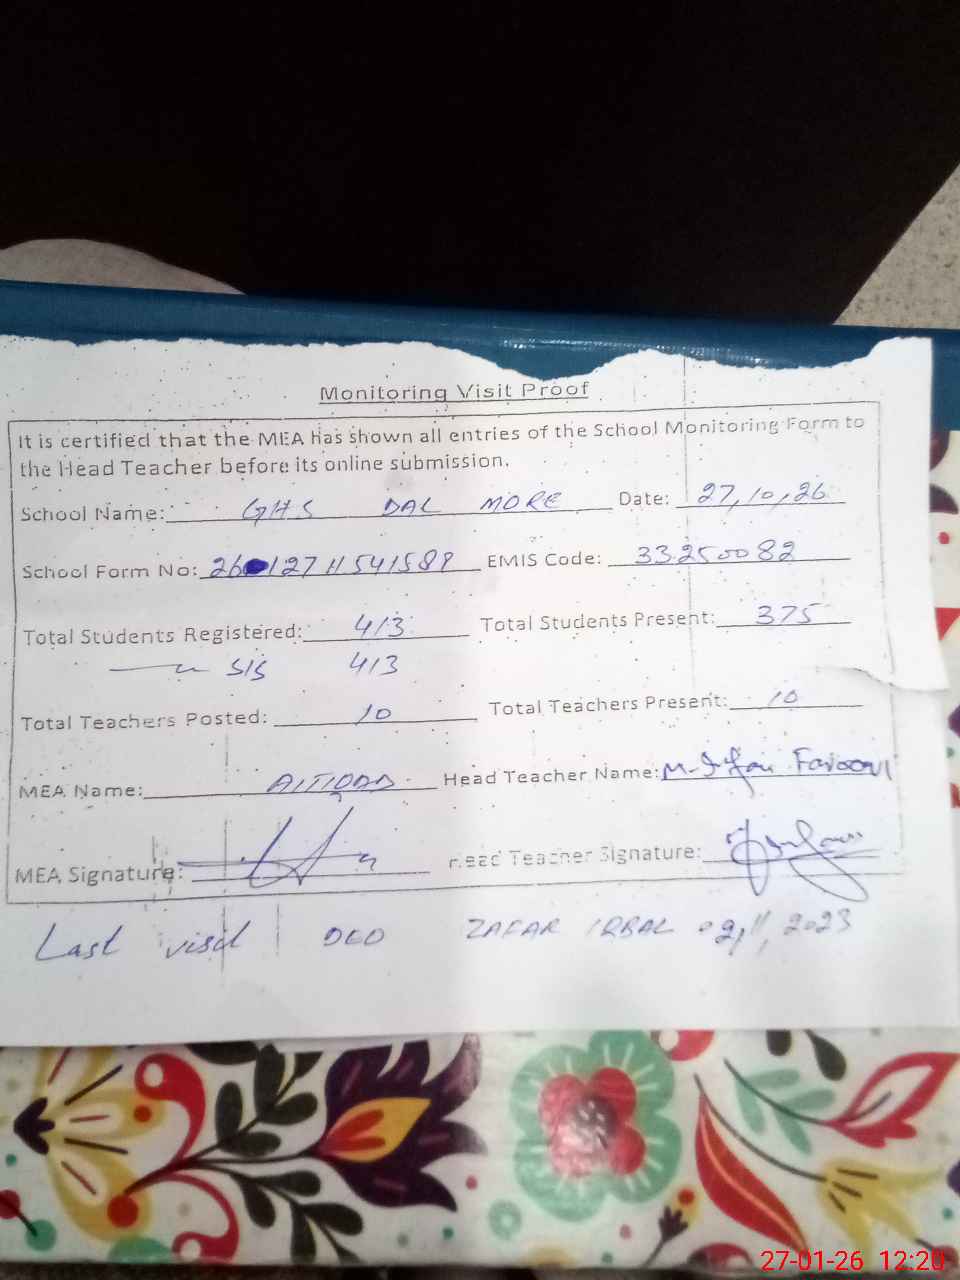 Monitoring Visit Proof
It is certified that the MEA has shown all entries of the School Monitoring Form to
the Head Teacher before its online submission.
School Name: GHS DAL MORE Date: 27,10,26
School Form No: 26012711541589 EMIS Code: 33250082
Total Students Registered: 413 Total Students Present: 375
SIS 413
Total Teachers Posted: 10 Total Teachers Present: 10
MEA Name: Head Teacher Name: M.
MEA Signature: Head Teacher Signature:
Last visit DEO ZAFAR IQBAL 02,11,2023
27-01-26 12:20